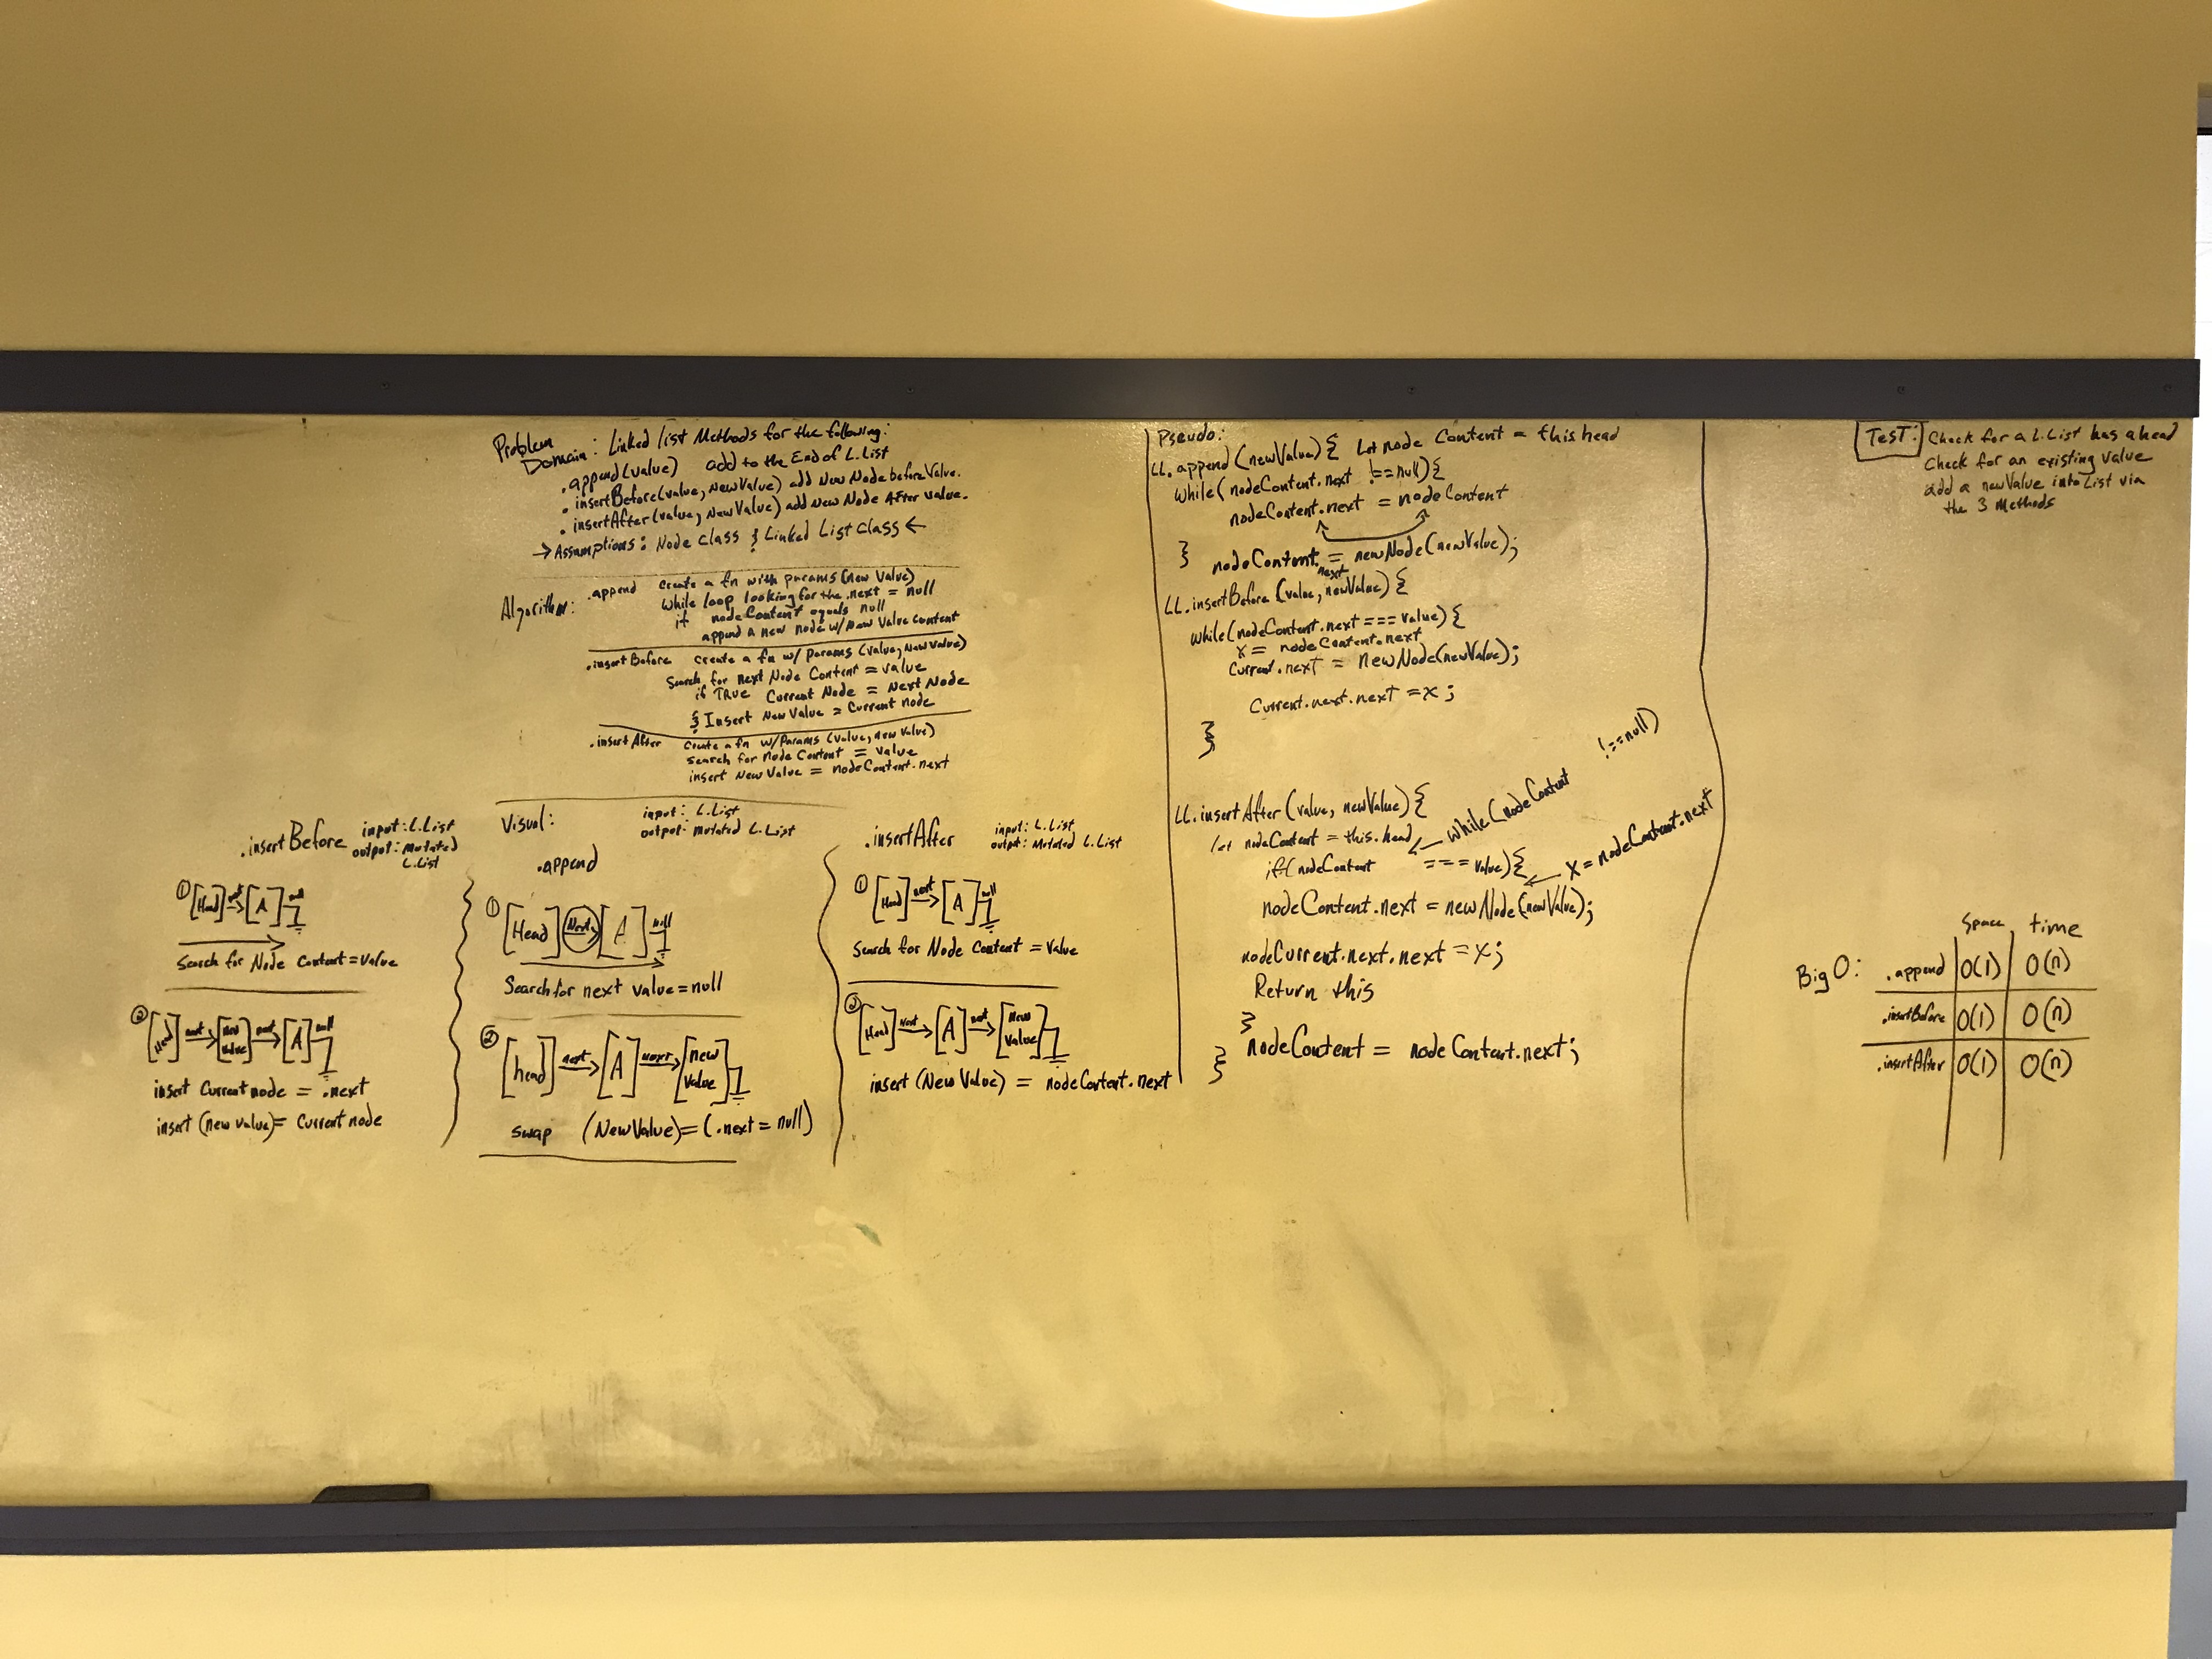 Problem Domain: Linked list Methods for the following:
.append(value) add to the End of L.List
.insertBefore(value, NewValue) add New Node before Value.
.insertAfter(value, NewValue) add New Node After value.
→Assumptions: Node class & Linked List Class←
Algorithm:
.append create a fn with params (new Value)
While loop looking for the .next = null
if nodeContent equals null
append a new node w/ New Value content
.insertBefore Create a fn w/ Params (Value, New Value)
Search for next Node Content = value
if TRUE Current Node = Next Node
& Insert New Value = Current node
.insertAfter Create a fn w/Params (value, new Value)
search for Node Content = value
insert New Value = nodeContent.next
.insertBefore
input: L.List
output: Mutated L.List
① [Head] next→ [A] null
Search for Node Content = Value
② [Head] next→ [New Value] next→ [A] null
insert Current node = .next
insert (new value) = Current node
Visual:
input: L.List
output: mutated L.List
.append
① [Head] Next→ [A] null
Search for next value = null
② [head] next→ [A] Next→ [new value]
swap (NewValue) = (.next = null)
.insertAfter
input: L.List
output: Mutated L.List
① [Head] next→ [A] null
Search for Node Content = Value
② [Head] Next→ [A] next→ [New Value]
insert (New Value) = nodeContent.next
Pseudo:
LL.append(newValue){ Let node Content = this.head
While(nodeContent.next !==null){
nodeContent.next = nodeContent
} nodeContent.next = newNode(newValue);
LL.insertBefore(value, newValue){
while(nodeContent.next === value){
X = nodeContent.next
Current.next = newNode(newValue);
Current.next.next = x;
}
}
LL.insertAfter(value, newValue){
let nodeContent = this.head
← while(nodeContent !==null)
if(nodeContent === value){
← X = nodeContent.next
nodeContent.next = newNode(newValue);
nodeCurrent.next.next = x;
Return this
}
nodeContent = nodeContent.next;
}
TesT: Check for a L.List has a head
Check for an existing value
add a newValue into List via
the 3 Methods
Big O:
Space time
.append O(1) O(n)
.insertBefore O(1) O(n)
.insertAfter O(1) O(n)